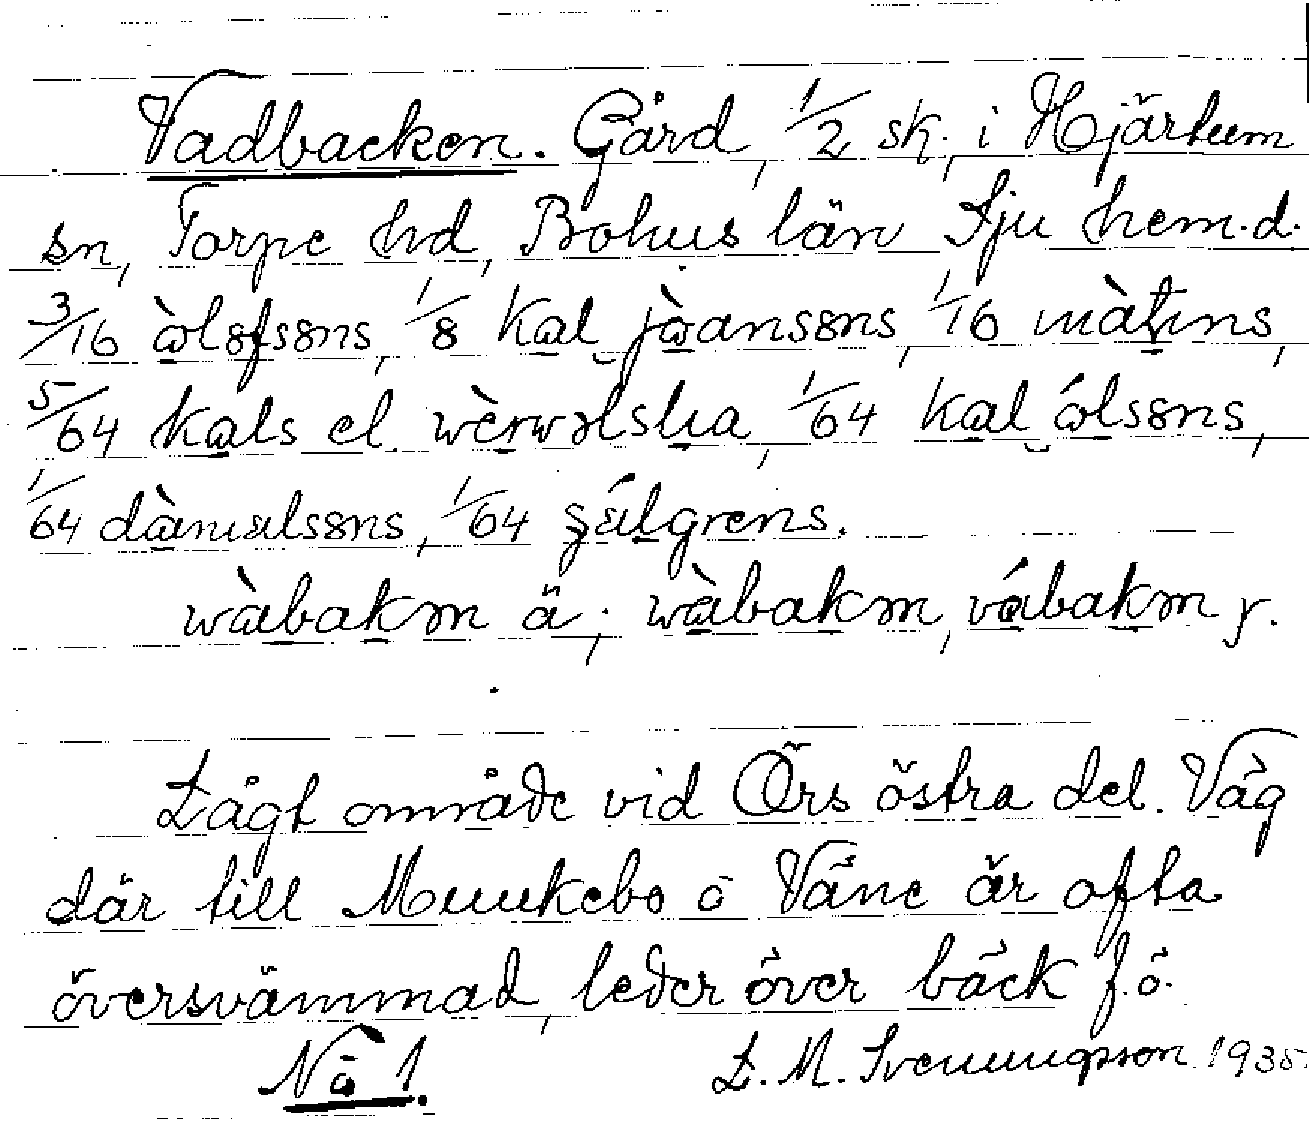 Vadbacken. Gård, 1/2 sk., i Hjärtum
sn, Torpe hd, Bohus län Sju hem.d.
3/16 òlofssons, 1/8 kal jòanssons, 1/16 màtins,
5/64 kals el. wèrwəlska, 1/64 kal ólssons,
1/64 dànialssons, 1/64 sálgrens.
wàbakm ä; wàbakm, vábakm y.
Lågt område vid Örs östra del. Väg
där till Munkebo o Väne är ofta
översvämmad, leder över bäck f.ö.
Nä 1. L. M. Svenungsson 1935.